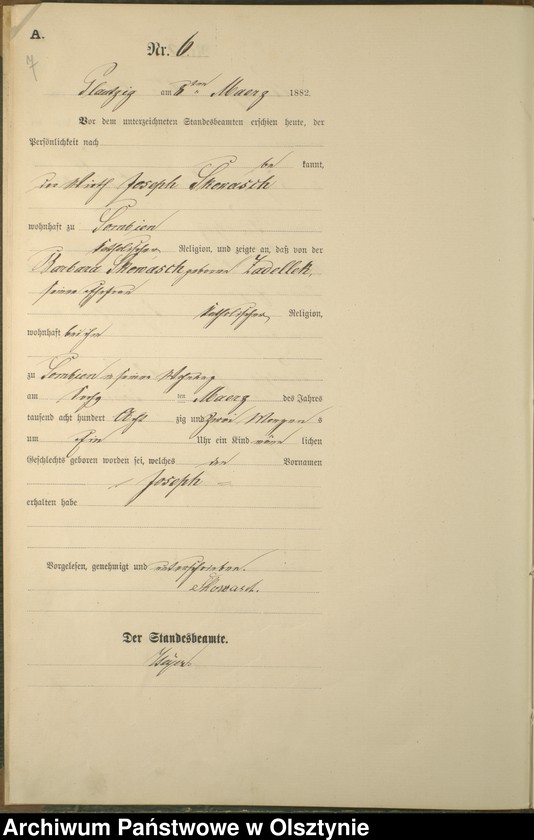 A.
7
Nr. 6.
am Maerz 1882.
Vor dem unterzeichneten Standesbeamten erschien heute, der
Persönlichkeit nach
be kannt,
der Wirth Joseph Skowasch
wohnhaft zu
katholischer Religion, und zeigte an, daß von der
Barbara Skowasch geborene Zadellek,
seiner Ehefrau
katholischer Religion,
wohnhaft bei ihm
zu in seiner Wohnung
am im Maerz des Jahres
tausend acht hundert Acht zig und Zwei Morgens
um Ein Uhr ein Kind männ lichen
Geschlechts geboren worden sei, welches den Vornamen
Joseph
erhalten habe
Vorgelesen, genehmigt und unterschrieben.
Der Standesbeamte.
Archiwum Państwowe w Olsztynie